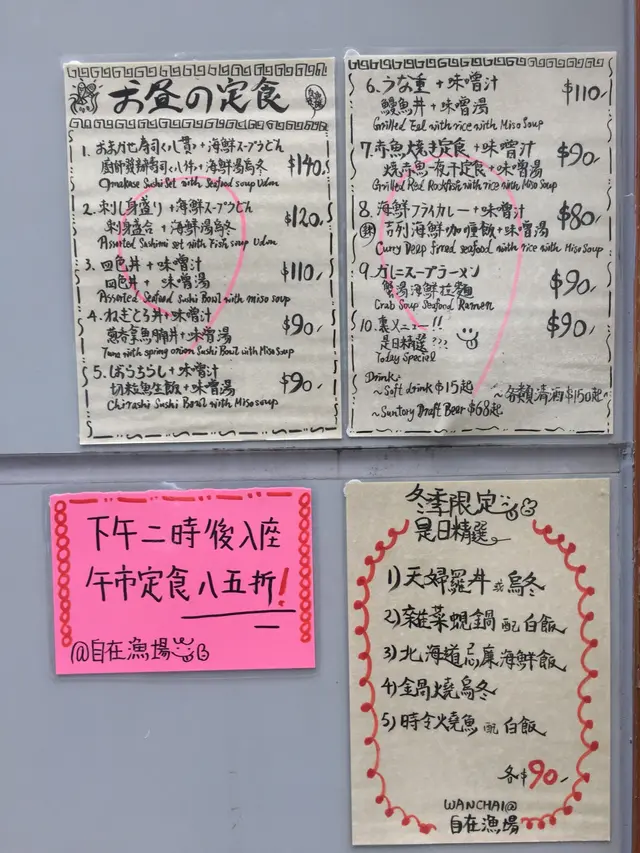 お昼の定食
1. おまかせ寿司く八貫+海鮮スープうどん
廚師發辦壽司く八件+海鮮湯烏冬 $140.
Omakase Sushi Set with Seafood soup Udon
2. 刺し身盛り+海鮮スープうどん
刺身盛合+海鮮湯烏冬 $120.
Assorted Sashimi set with Fish soup Udon
3. 四色丼+味噌汁
四色丼+味噌湯 $110-
Assorted Seafood Sushi Bowl with miso soup
4. ねぎとろ丼+味噌汁
蔥吞拿魚腩丼+味噌湯 $90-
Tuna with spring onion Sushi Bowl with Miso Soup
5. ばらちらし+味噌汁
切粒魚生飯+味噌湯 $90-
Chirashi Sushi Bowl with Miso soup
6. うな重+味噌汁
鰻魚丼+味噌湯 $110-
Grilled Eel with rice with Miso Soup
7. 赤魚焼き定食+味噌汁
燒赤魚一夜汁定食+味噌湯 $90-
Grilled Red Rockfish with rice with Miso Soup
8. 海鮮フライカレー+味噌汁
吉列海鮮咖喱飯+味噌湯 $80-
Curry Deep fried seafood with rice with Miso Soup
9. カニスープラーメン
蟹湯海鮮拉麵 $90-
Crab Soup Seafood Ramen
10. 裏メニュー!!
是日精選??? $90-
Today Special
Drink:
~Soft drink $15起
~各類清酒$150起
~Suntory Draft Beer $68起
下午二時後入座
午市定食八五折!
@自在漁場
冬季限定
是日精選
1) 天婦羅丼或烏冬
2) 雜菜蜆鍋配白飯
3) 北海道忌廉海鮮飯
4) 鍋燒烏冬
5) 時令燒魚配白飯
各$90-
WANCHAI@
自在漁場